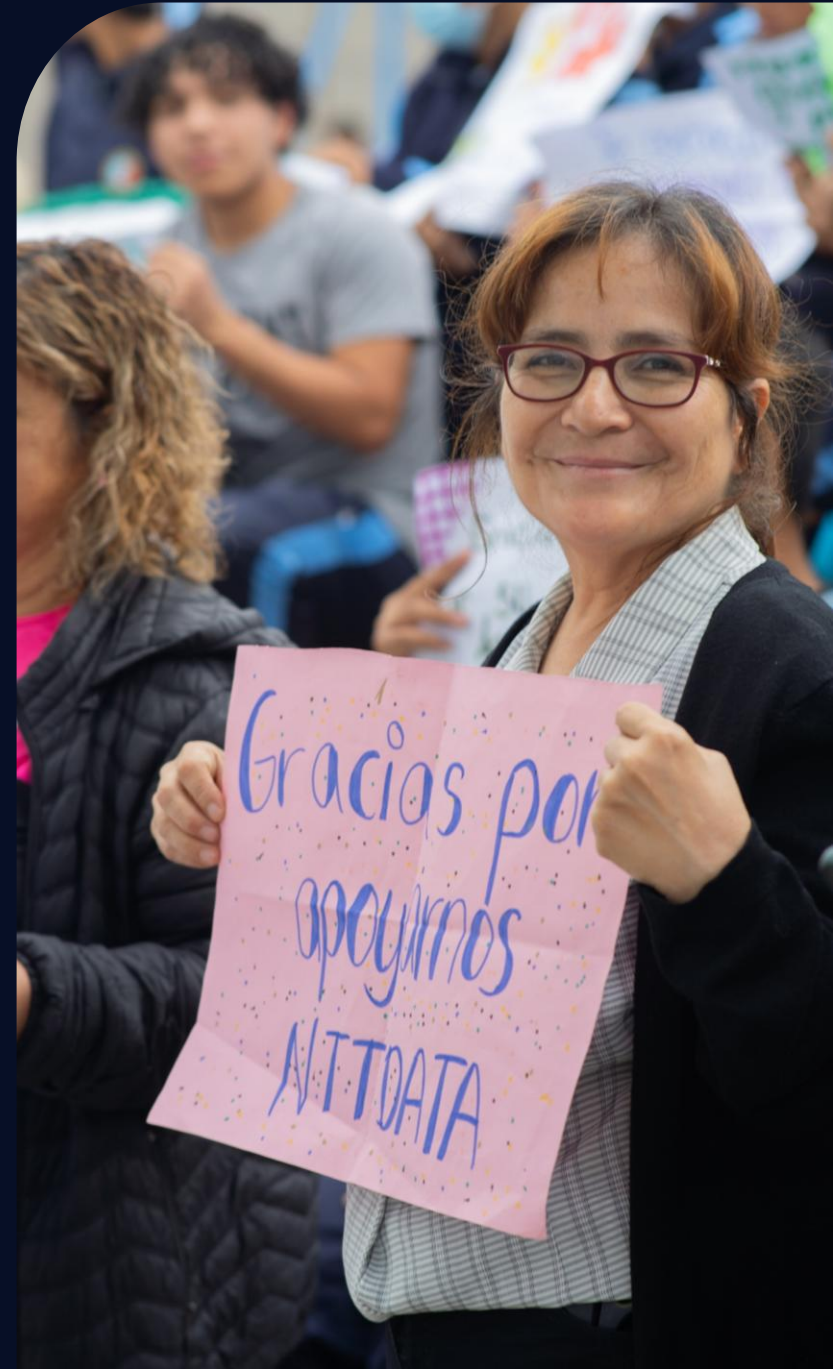 Gracias por
apoyarnos
NTTDATA